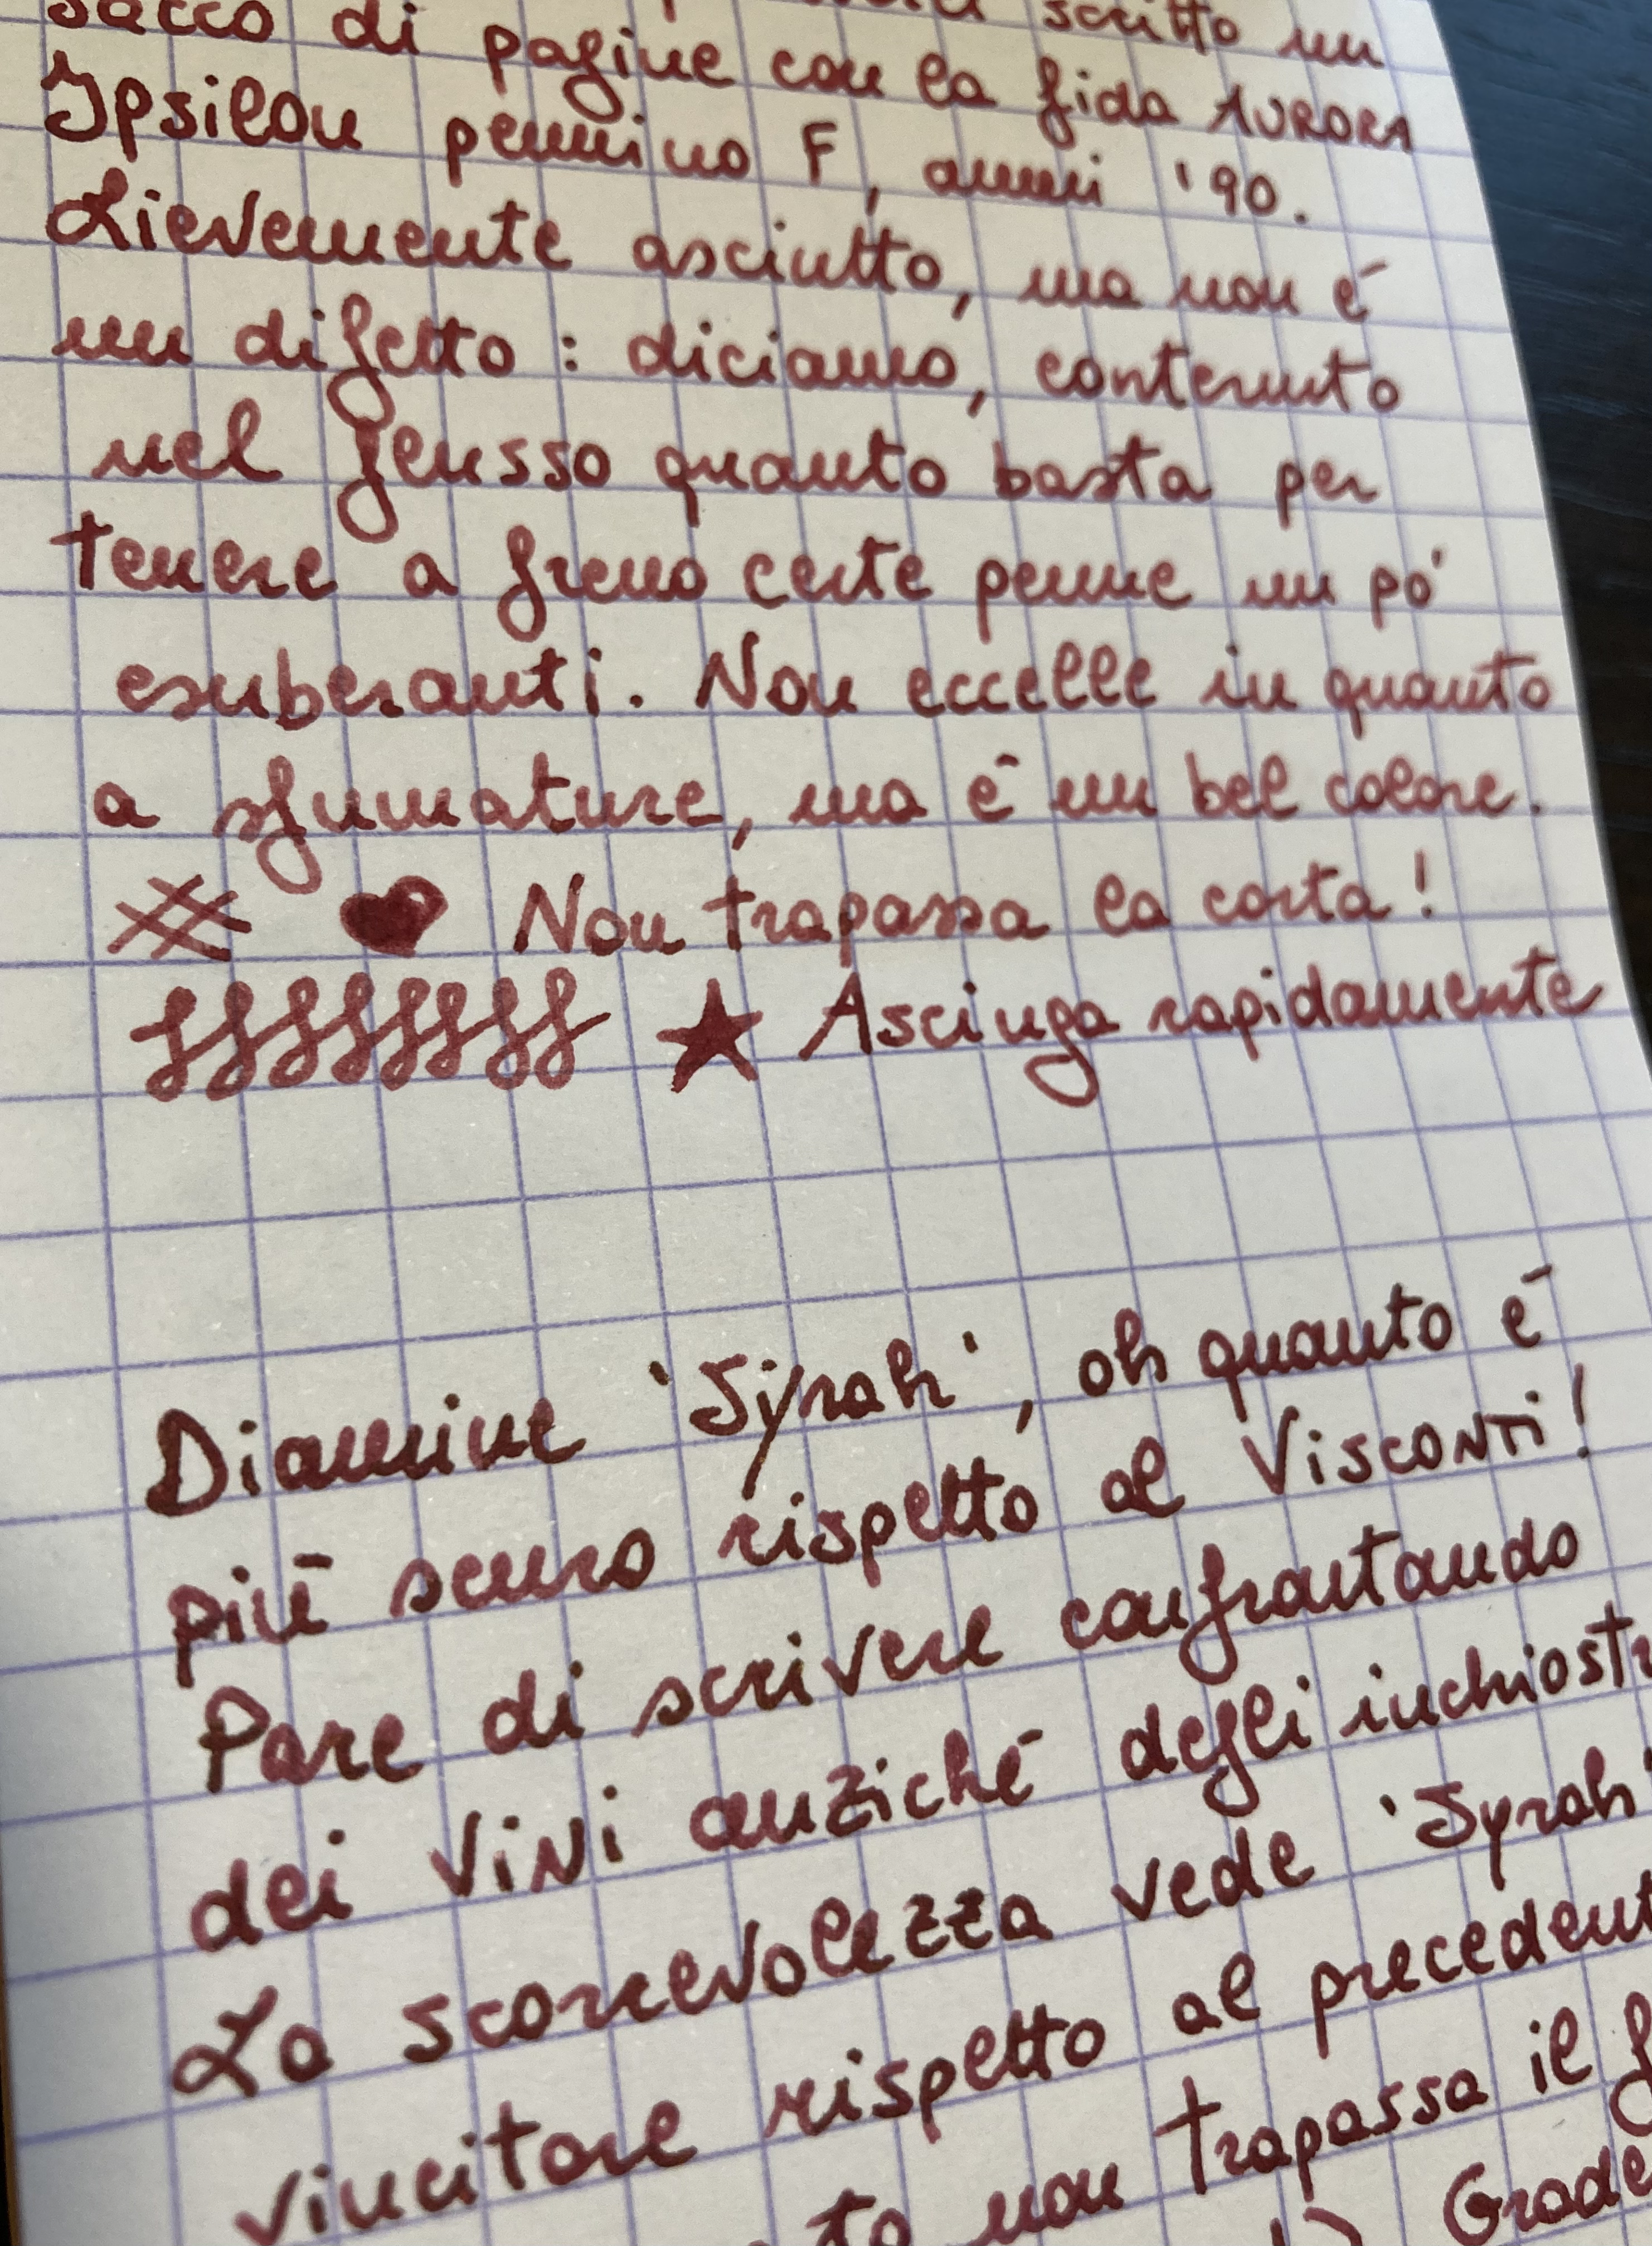 sacco di pagine con la fida AURORA
scritto un
Ypsilon pennino F, anni '90.
Lievemente asciutto, ma non é
un difetto : diciamo, contenuto
nel flusso quanto basta per
tenere a freno certe penne un pó
esuberanti. Non eccelle in quanto
a sfumature, ma é un bel colore.
Non trapassa la carta!
Asciuga rapidamente
Diamine 'Syrah', oh quanto é
piú scuro rispetto al Visconti!
Pare di scrivere confrontando
dei vini anziché degli inchiostr
La scorrevolezza vede 'Syrah'
vincitore rispetto al precedent
non trapassa il f
Grade